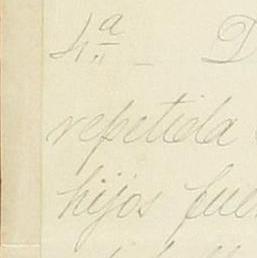 4ª - D
repetida
hijos fue